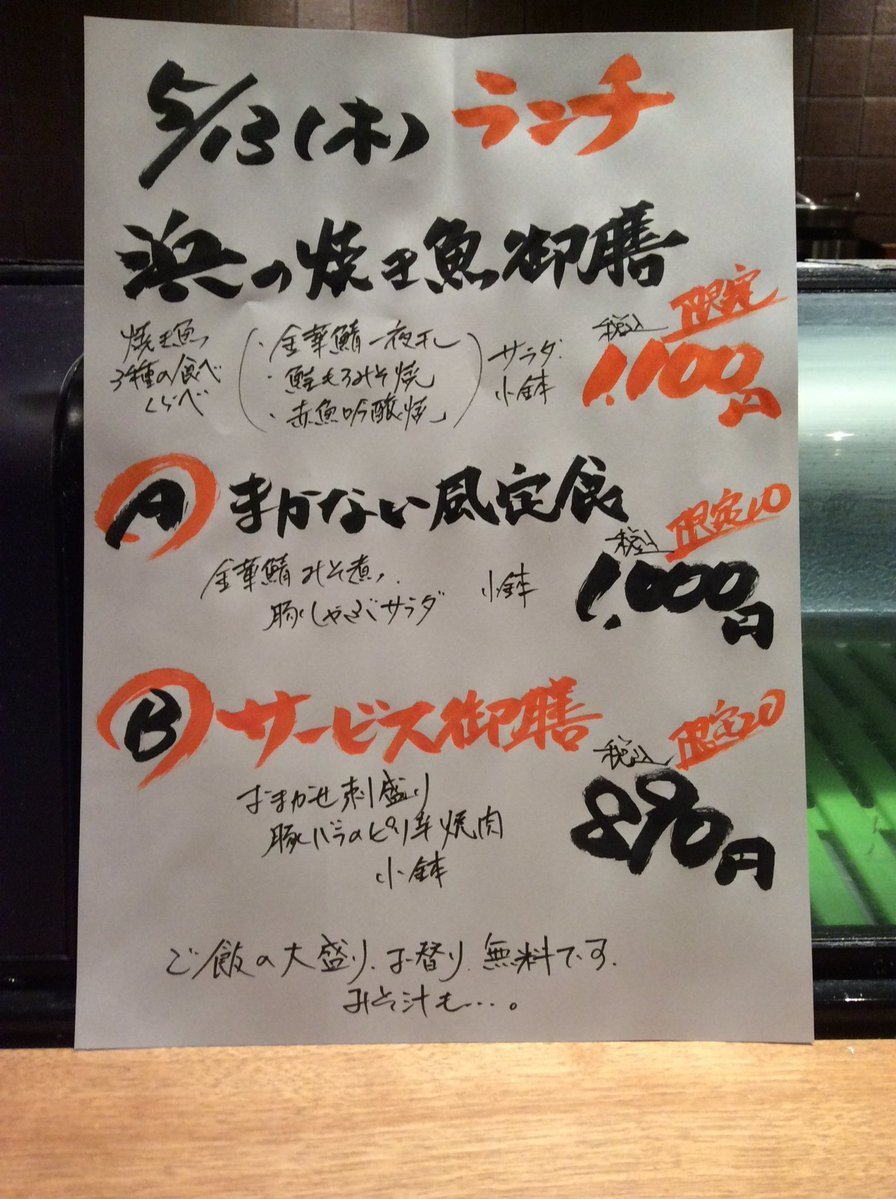 5/13(木) ランチ
浜の焼き魚御膳
限定
税込
1,100円
焼き魚
3種の食べ
くらべ
(・金華鯖一夜干し
・鮭もろみそ焼
・赤魚吟醸焼)
サラダ
小鉢
A まかない風定食
限定10
税込
1,000円
金華鯖みそ煮、
豚しゃぶサラダ
小鉢
B サービス御膳
限定20
税込
890円
おまかせ刺し盛り
豚バラのピリ辛焼肉
小鉢
ご飯の大盛り、お替り、無料です。
みそ汁も…。